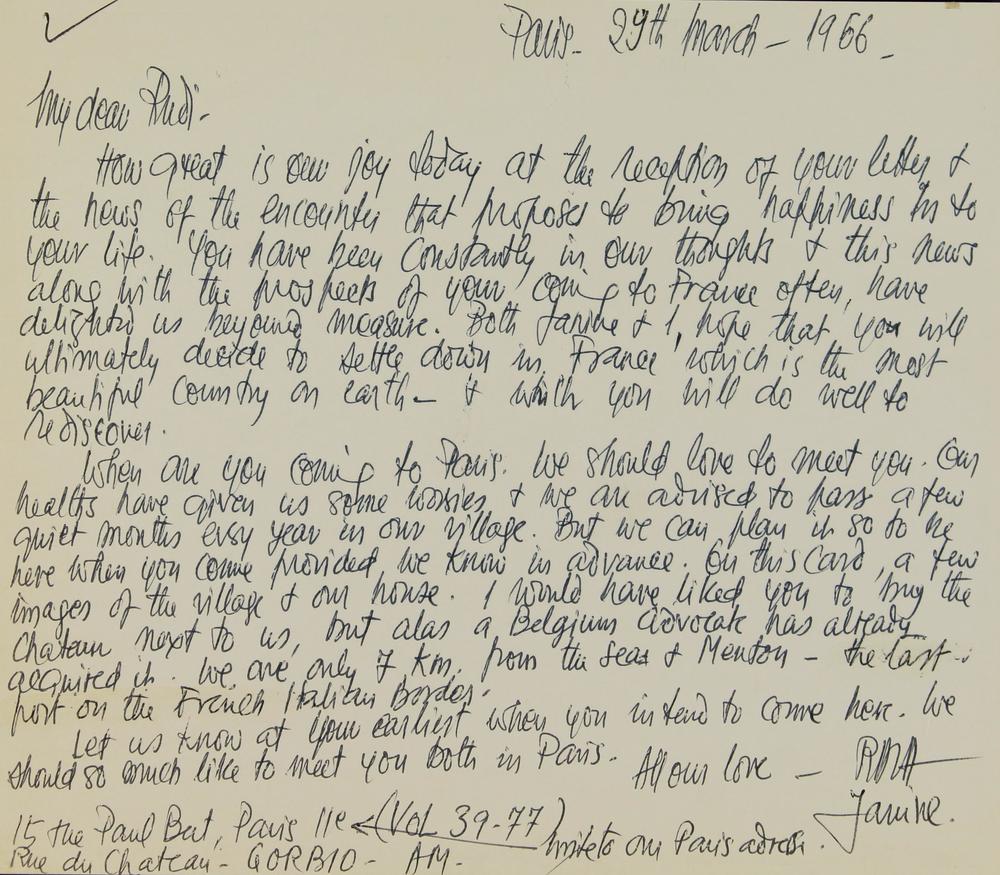 Paris - 29th March - 1966 -
My dear Rudi -
How great is our joy today at the reception of your letter &
the news of the encounter that proposes to bring happiness in to
your life. You have been constantly in our thoughts & this news
along with the prospects of your coming to France often, have
delighted us beyound measure. Both Janine & I, hope that, you will
ultimately decide to settle down in France which is the most
beautiful country on earth - & which you will do well to
rediscover.
When are you coming to Paris. We should love to meet you. Our
healths have given us some worries, & we are advised to pass a few
quiet months every year in our village. But we can plan it so to be
here when you come provided, we know in advance. On this card, a few
images of the village & our house. I would have liked you to buy the
Chateau next to us, but alas a Belgium advocate has already
acquired it. We are only 7 km. from the seas & Menton - the last
post on the French Italian Border.
Let us know at your earliest when you intend to come here. We
should so much like to meet you both in Paris.
All our love - RAZA
Janine.
15 rue Paul Bert, Paris 11e < (VOL 39-77)
Write to our Paris adress.
Rue du Chateau - GORBIO - AM.